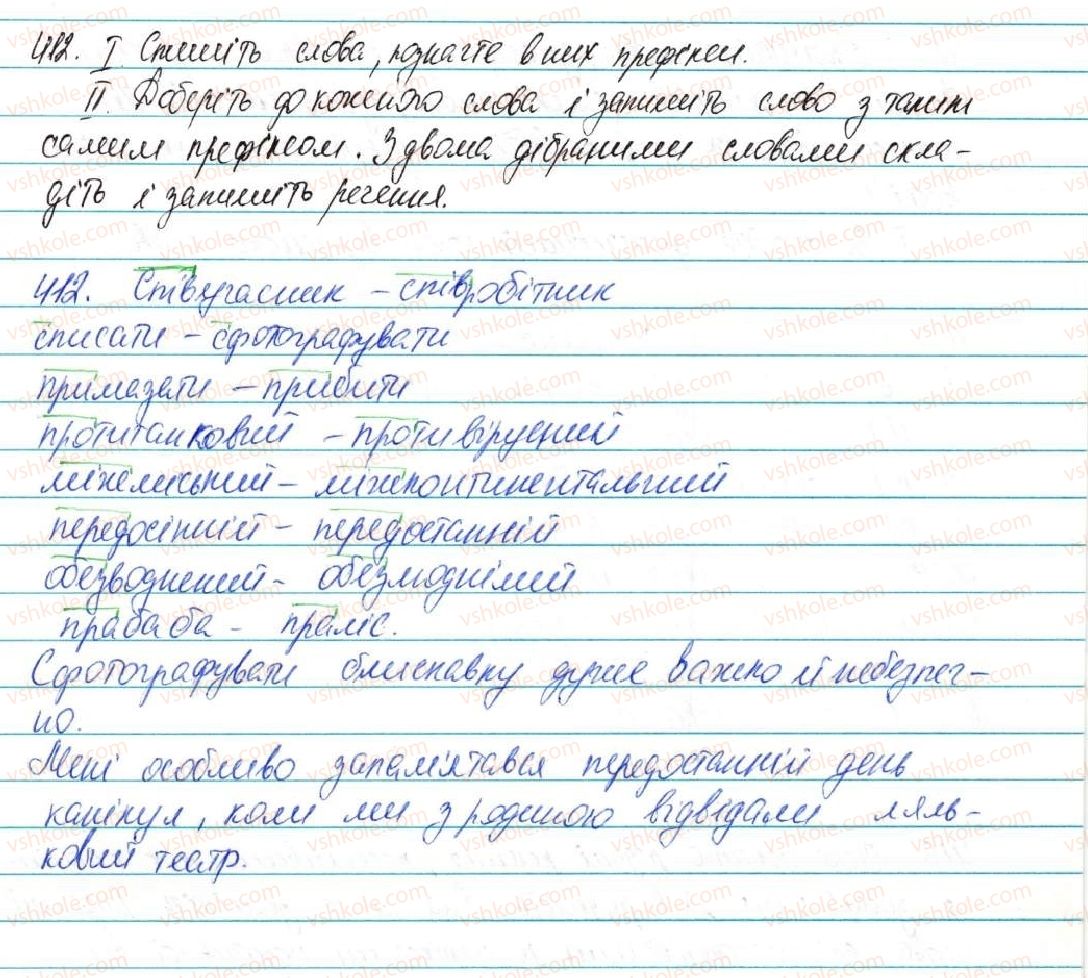 412. I Спишіть слова, позначте в них префікси.
II. Доберіть до кожного слова і запишіть слово з таким
самим префіксом. З двома дібраними словами скла-
діть і запишіть речення.
412. Співучасник – співробітник
списати – сфотографувати
примазати – прибити
протитанковий – противірусний
міжміський – міжконтинентальний
передосінній – передостанній
обезводнений – обезлюднілий
прабаба – праліс.
Сфотографувати блискавку дуже важко й небезпеч-
но.
Мені особливо запам'ятався передостанній день
канікул, коли ми з родиною відвідали ляль-
ковий театр.